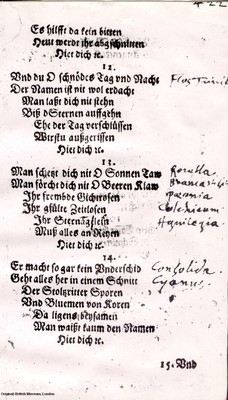 422
Es hilfft da kein bitten
Heut werdt ihr abgschnitten
Hiet dich ꝛc.
12.
Vnd du O schnödes Tag vnd Nacht
Der Namen ist nit wol erdacht
Man laßt dich nit stehn
Biß dSternen auffgehn
Ehe der Tag verschlüssen
Wirstu außgerissen
Hiet dich ꝛc.
13.
Man schetzt dich nit O Sonnen Taw Rorella
Man förcht dich nit O Beeren Klaw Branca
Ihr frembde Gichtrosen pæonia
Ihr gfülte Zeitlosen Colchicum
Ihr Aquilegia
Muß alles an Reyen
Hiet dich ꝛc.
14.
Er macht so gar kein Vnderschid Consolida
Geht alles her in einem Schnitt Cyanus
Der Stoltzritter Sporen
Vnd Bluemen von Koren
Da ligens beysamen
Man waißt kaum den Namen
Hiet dich ꝛc.
15. Vnd
Original: British Museum, London